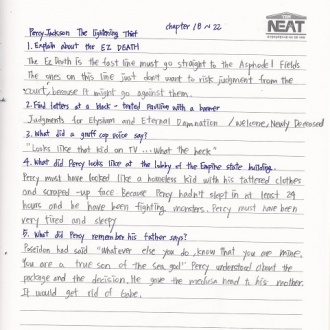 chapter 18 ~ 22
THE NEAT
Percy Jackson The Lightning Thief
1. Explain about the EZ DEATH
The Ez Death is the fast line must go straight to the Asphodel Fields
The ones on this line just don't want to risk judgment from the
court, because it might go against them.
2. Find letters at a black - tented pavilion with a banner
Judgments for Elysium and Eternal Damnation / Welcome, Newly Deceased
3. What did a gruff cop voice say?
"Looks like that kid on TV ... what the heck"
4. What did Percy looks like at the lobby of the Empire state building.
Percy must have locked like a homeless kid with his tattered clothes
and scraped-up face Because Percy hadn't slept in at least 24
hours and he have been fighting monsters. Percy must have been
very tired and sleepy
5. What did Percy remember his father says?
Poseidon had said "Whatever else you do, know that you are mine.
You are a true son of the sea god" Percy understood about the
package and the decision. He gave the medusa head to his mother
It would get rid of Gabe.